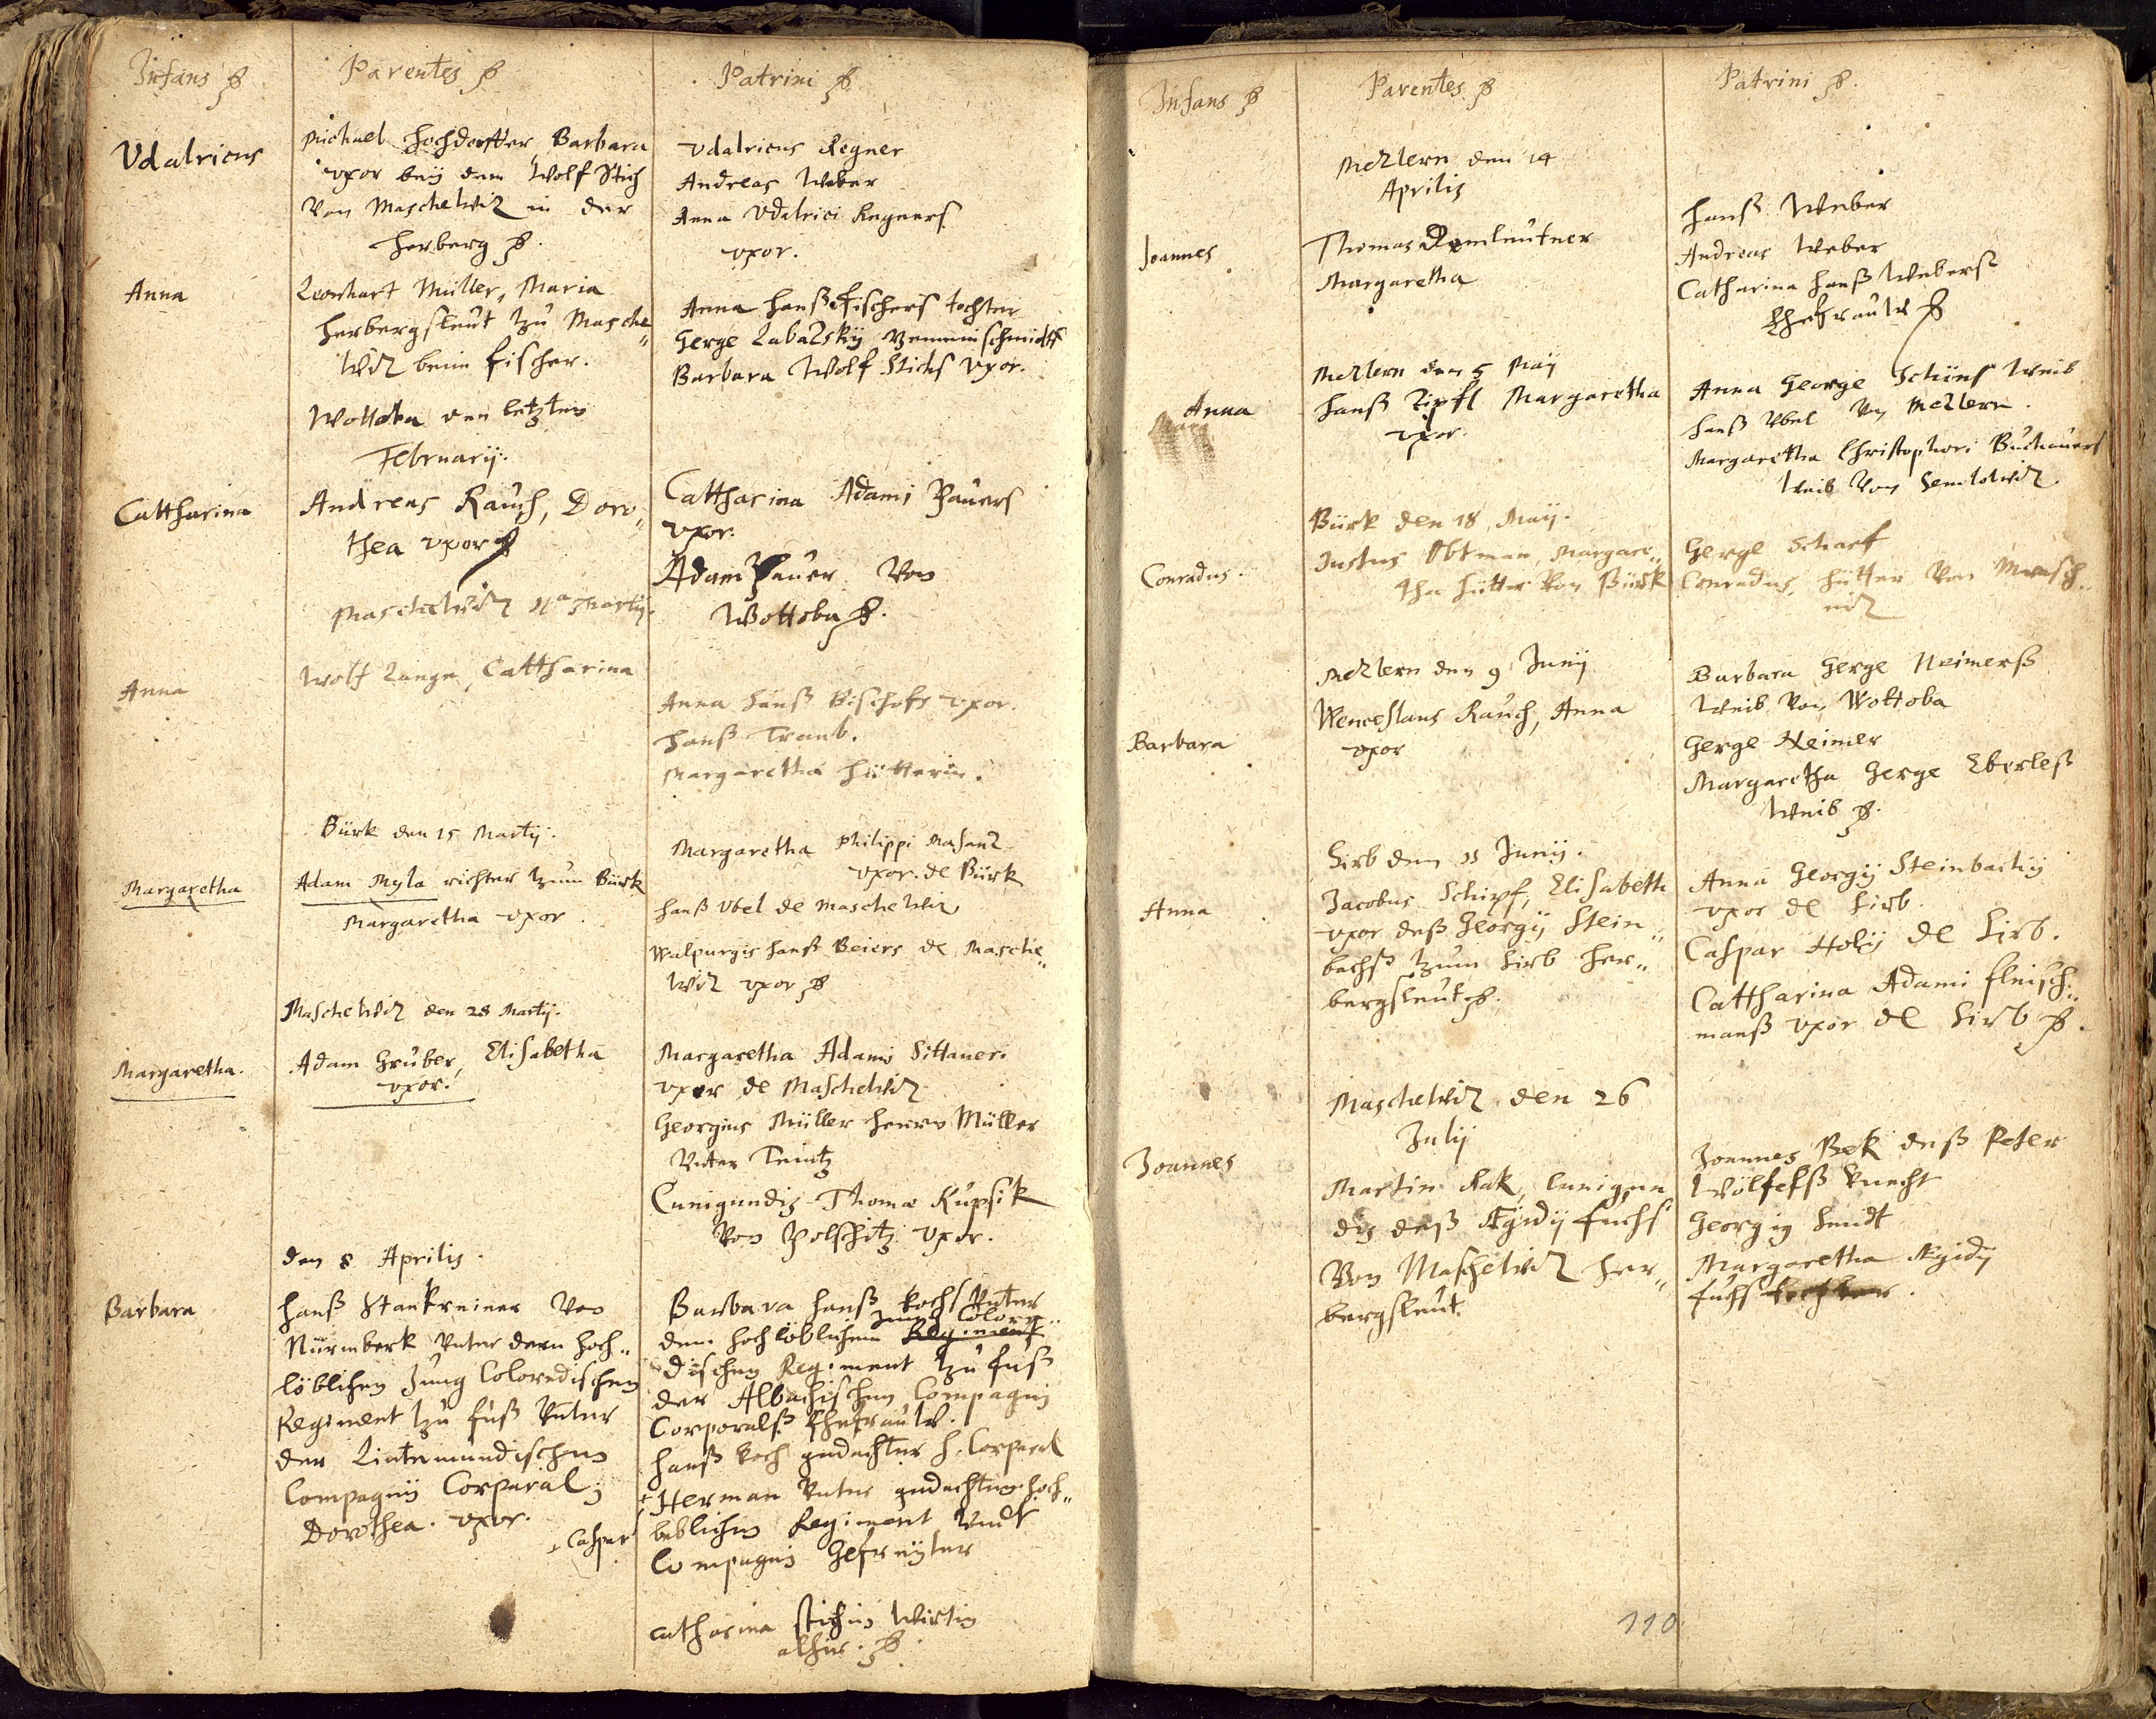 Infans
Parentes
Patrini
Udalricus
Michael Hochdorffer, Barbara
uxor beÿ dem Wolf Stich
von Maschewiz in der
Herberg
Udalricus Regner
Andreas Weber
Anna Udalrici Regners
uxor.
Anna
Leonhart Müller, Maria
Herbergsleut zu Masche„
wiz beim Fischer.
Anna Hanß Fischers tochter
Gerge
Barbara Wolf Stichs uxor.
Wottoba den letzten
Februarij.
Cattharina
Andreas Rauch, Doro„
thea uxor
Cattharina Adami Pauers
uxor.
Adam Pauer von
Wottoba
Maschewiz 11a Martij.
Anna
Wolf Lange, Cattharina
Anna Hanß Bischofs uxor.
Hanß Traub.
Margaretha Hütterin.
Bürk den 15 Martij.
Margaretha
Adam Myla richter zum Bürk
Margaretha uxor
Margaretha Philippi
uxor. de Bürk
Hanß Ubel de Maschewiz
Walpurgis Hanß Beiers de Masche„
wiz uxor
Maschewiz den 28 Martij.
Margaretha.
Adam Gruber, Elisabetha
uxor.
Margaretha Adami Sittaueri
uxor de Maschewiz
Georgius Müller Herrn Müller
Unter Teintz
Cunigundis Thomæ Kupsik
von Polschitz uxor.
den 8 Aprilis.
Barbara
Hanß Stankreiner von
Nürmberk unter dem hoch„
löblichen Jung Coloredischen
Regiment zu fuß unter
der Lintemundischen
Compagnÿ Corparal;
Dorothea. uxor.
Barbara Hanß Kochs unter
Jung Colore„
dem hochlöblichem Regiment
dischen Regiment zu fuß
der Albachischen Compagni
Corporalß Ehefrauw.
Hanß Koch gedachter H. Corparal
+ Caspar
+ Herman unter gedachten hoch„
beblichen Regiment undt
Compagni Gefreÿter
Catharina Stichin Wirtin
alhier.
Infans
Parentes
Patrini
Mezlern den 14
Aprilis
Joannes
Thomas
Margaretha
Hanß Weber
Andreas Weber
Catharina Hanß Weberß
Ehefrauw
Mezlern den 5 Maÿ
Anna
Hanß Zipfl Margaretha
uxor.
Anna George Schünß weib
Hanß Ubel von Mezlern.
Margaretha Christophori Buchauers
weib von Semlowiz.
Bürk den 18 Maÿ.
Conradus.
Justus Obtman, Margare„
tha Hütter von Bürk
Gerge Scharf
Conradus, Hütter von Masch„
wiz
Mezlern den 9 Junij
Barbara
Wenceslaus Rauch, Anna
uxor
Barbara Gerge Neimerß
weib von Wottoba
Gerge Neimer
Margaretha Gerge Eberleß
weib
Hirb den 11 Junij.
Anna
Jacobus Schipf, Elisabeth
uxor deß Georgij Stein„
bachß zum Hirb Her„
bergsleut
Anna Georgij Steinbachij
uxor de Hirb.
Caspar Holÿ de Hirb.
Cattharina Adami Fleisch„
manß uxor de Hirb
Maschewiz den 26
Julij
Joannes
Martin Rak, Cunigun
dis deß Ægidij Fuchs
von Maschewiz Her„
bergsleut.
Joannes Bek deß Peter
Wölfelß knecht
Georgig Hundt
Margaretha Ægidij
Fuchs tochter.
110